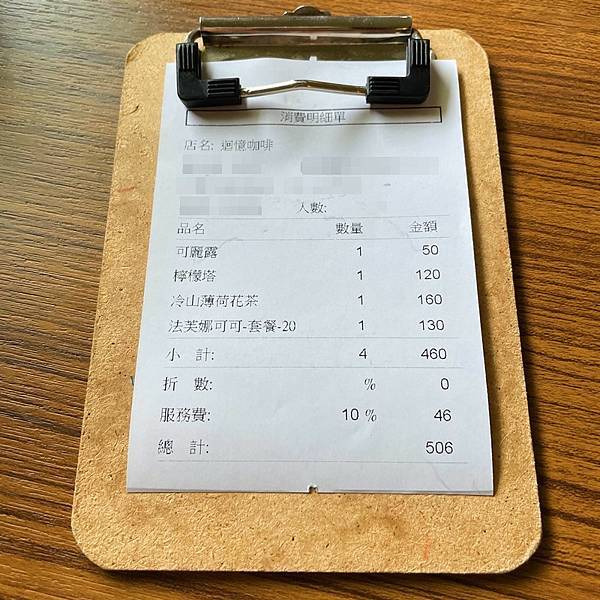 消費明細單
店名: 迴憶咖啡
人數:
品名 數量 金額
可麗露 1 50
檸檬塔 1 120
冷山薄荷花茶 1 160
法芙娜可可-套餐-20 1 130
小 計: 4 460
折 數: % 0
服務費: 10 % 46
總 計: 506